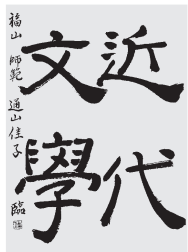 近代
文學
福山 師範 通山佳子 臨